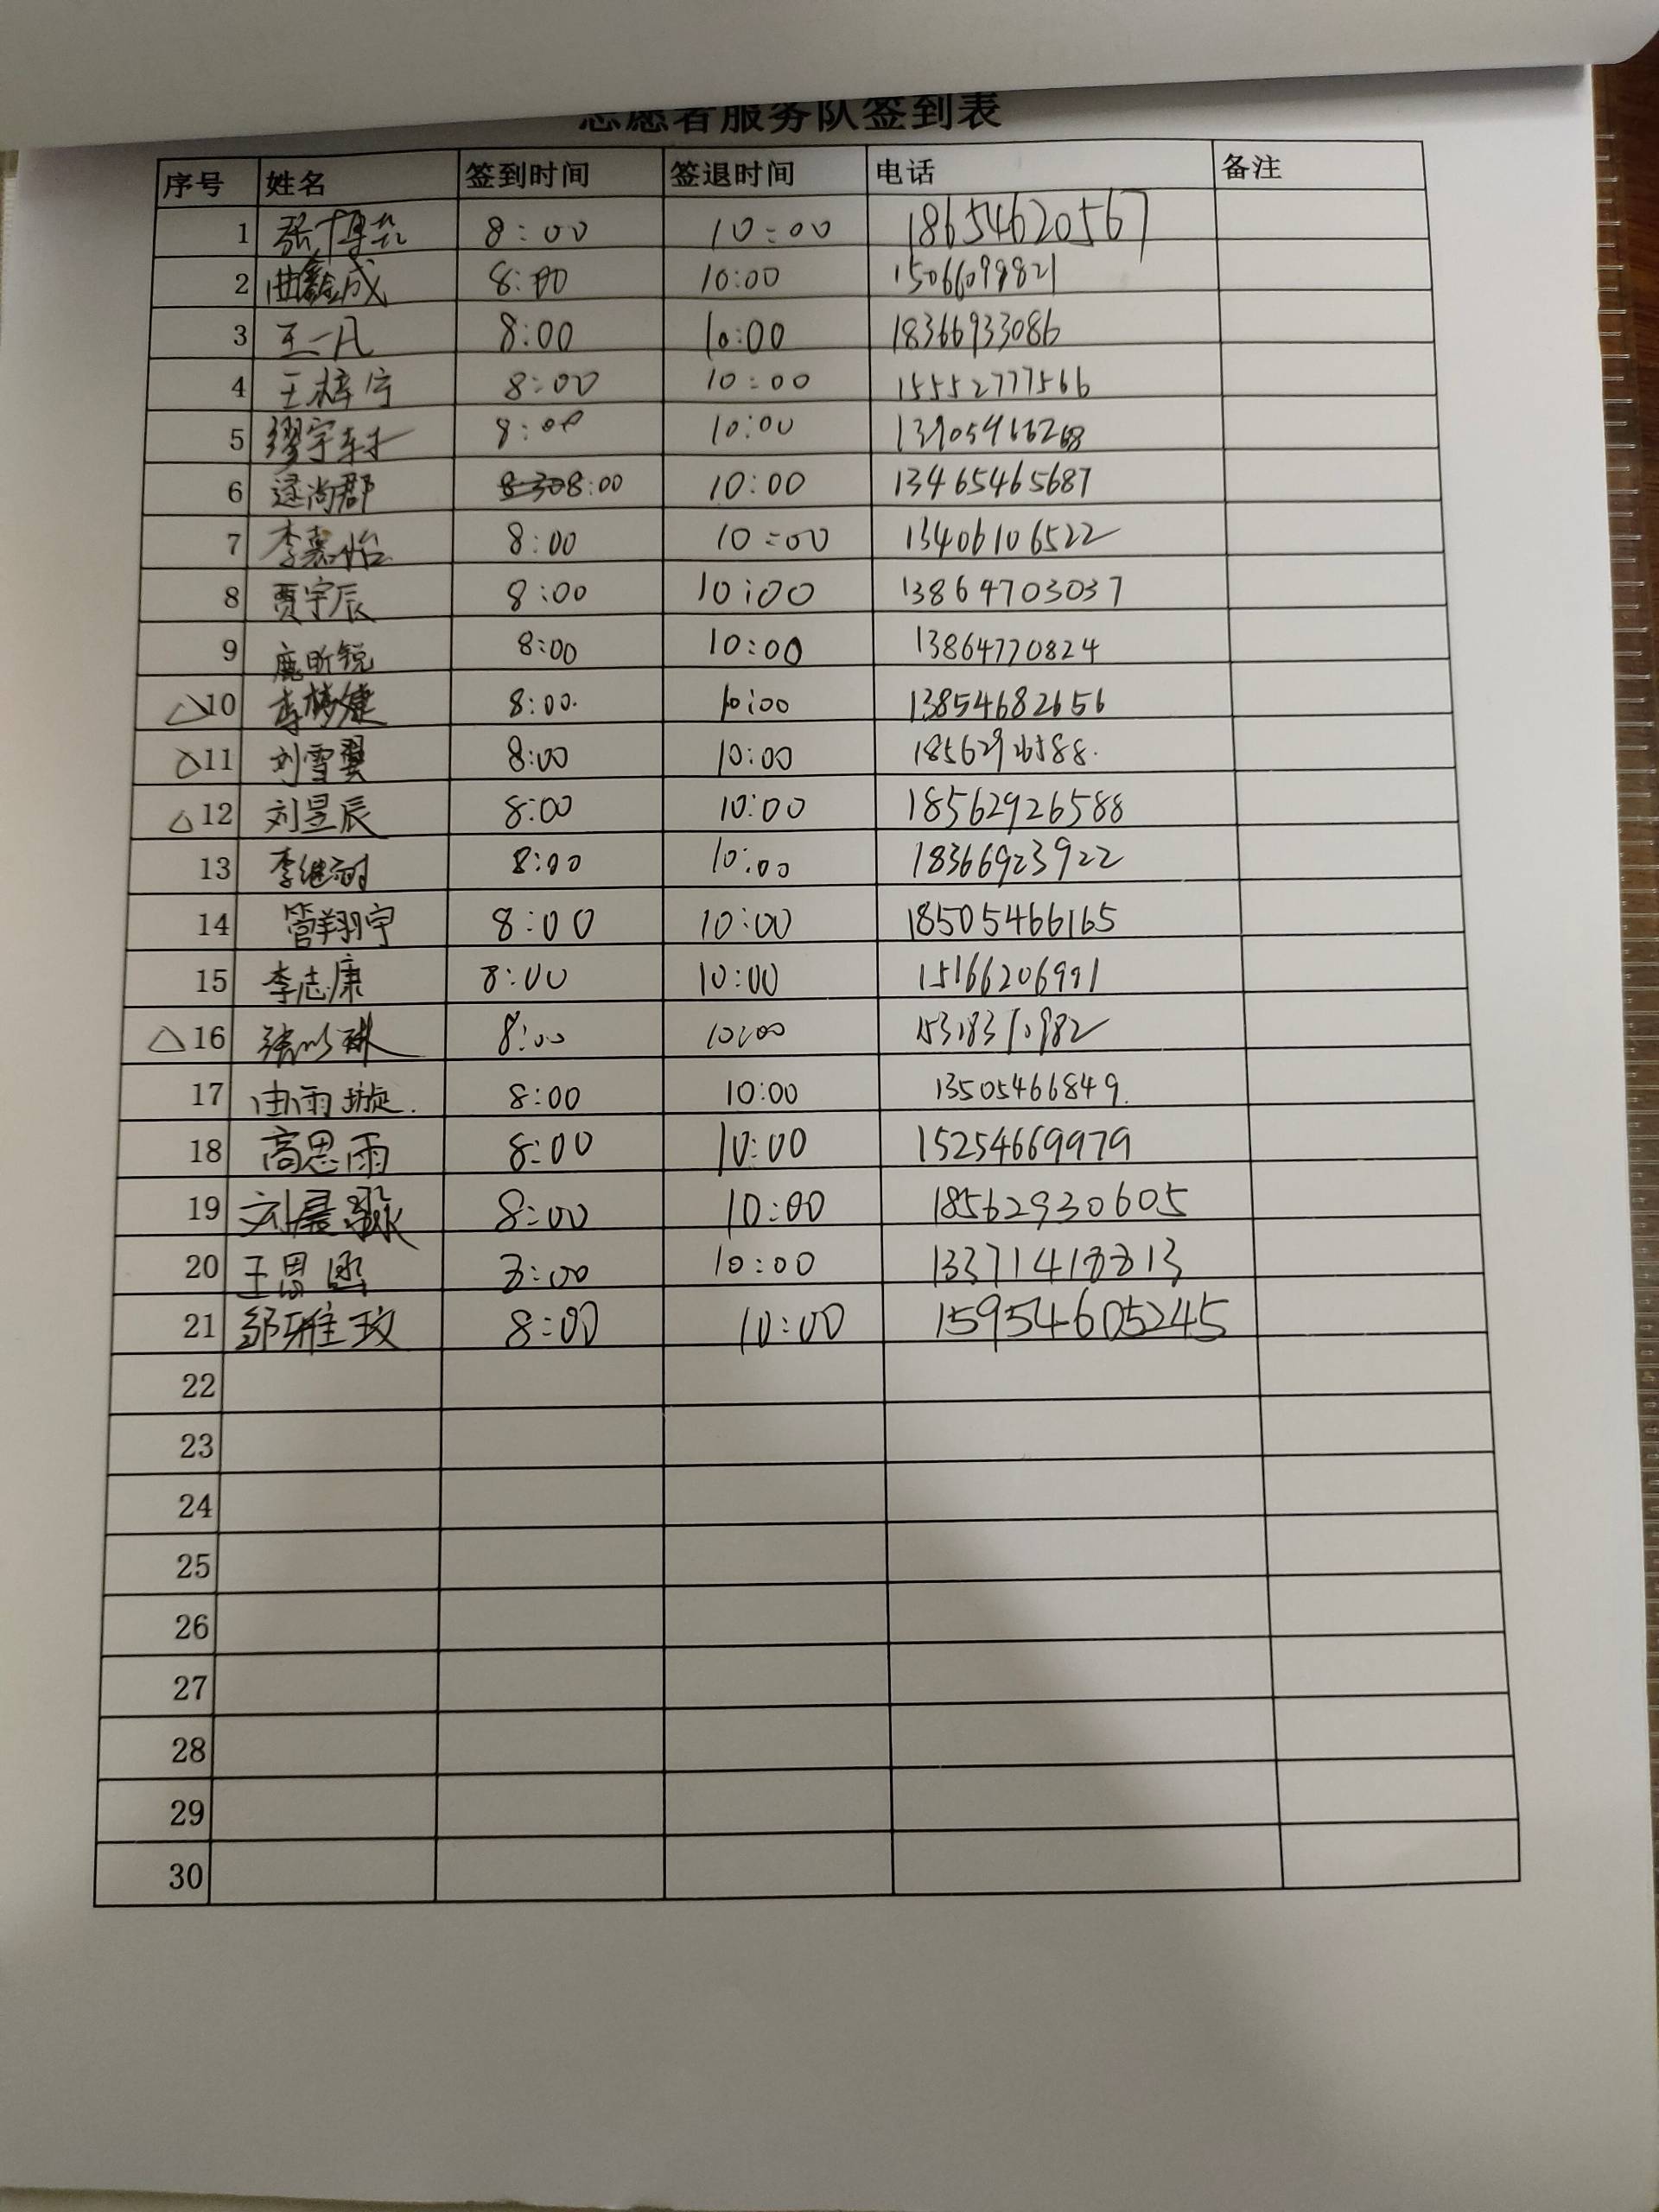 志愿者服务队签到表
序号 姓名 签到时间 签退时间 电话 备注
1 张博芸 8:00 10:00 18654620567
2 曲鑫成 8:00 10:00 15066099821
3 王一凡 8:00 10:00 18366933086
4 王梓宁 8:00 10:00 15552777566
5 缪宇轩 8:00 10:00 13905466268
6 逯尚郡 8:30 8:00 10:00 13465465687
7 李嘉怡 8:00 10:00 13406106522
8 贾宇辰 8:00 10:00 13864703037
9 鹿昕锐 8:00 10:00 13864770824
△10 李梦婕 8:00. 10:00 13854682656
△11 刘雪翼 8:00 10:00
△12 刘昱辰 8:00 10:00 18562926588
13 8:00 10:00 18366923922
14 管翔宇 8:00 10:00 18505466165
15 李志康 8:00 10:00 15166206991
△16 8:00 10:00 15318370982
17 由雨璇. 8:00 10:00 13505466849.
18 高思雨 8:00 10:00 15254669979
19 8:00 10:00 18562930605
20 王思涵 8:00 10:00 13371418813
21 邹雅玟 8:00 10:00 15954605245
22
23
24
25
26
27
28
29
30